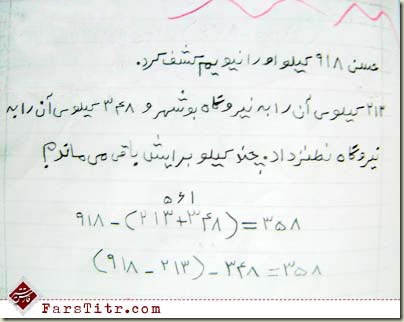 حسن ۹۱۸ کیلو اورانیویم کشف کرد.
۲۱۳ کیلوی آن را به نیروگاه بوشهر و ۳۴۸ کیلوی آن را به
نیروگاه نطنز داد. چند کیلو برایش باقی می ماند؟
۵۶۱
۹۱۸ - (۲۱۳+۳۴۸) = ۳۵۸
(۹۱۸ - ۲۱۳) - ۳۴۸ = ۳۵۸
FarsTitr.com